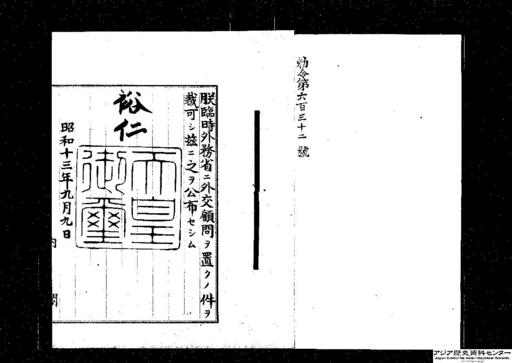 勅令第六百三十二號
朕臨時外務省ニ外交顧問ヲ置クノ件ヲ
裁可シ茲ニ之ヲ公布セシム
裕仁
天皇
御璽
昭和十三年九月九日
内閣
アジア歴史資料センター
Japan Center for Asian Historical Records